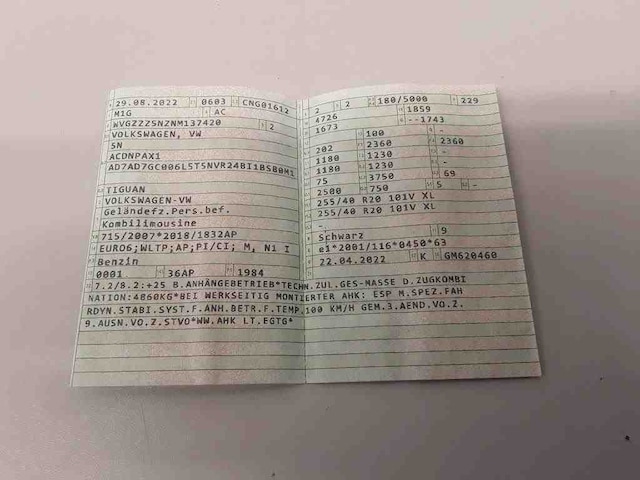 29.08.2022 0603 CNG01612
M1G AC
WVGZZZ5NZNM137420 2
VOLKSWAGEN, VW
5N
ACDNPAX1
AD7AD7GC006L5T5NVR24BI1BS80M1
-
TIGUAN
VOLKSWAGEN-VW
Geländefz.Pers.bef.
Kombilimousine
715/2007*2018/1832AP
EURO6;WLTP;AP;PI/CI; M, N1 I
Benzin
0001 36AP 1984
2 2 180/5000 229
4726 1859
1673 --1743
100 -
202 2360 2360
1180 1230 -
1180 1230 -
75 3750 69
2500 750 5 -
255/40 R20 101V XL
255/40 R20 101V XL
-
Schwarz 9
e1*2001/116*0450*63
22.04.2022 K GM620460
7.2/8.2:+25 B.ANHÄNGEBETRIEB*TECHN.ZUL.GES-MASSE D.ZUGKOMBI
NATION:4860KG*BEI WERKSEITIG MONTIERTER AHK: ESP M.SPEZ.FAH
RDYN.STABI.SYST.F.ANH.BETR.F.TEMP.100 KM/H GEM.3.AEND.VO.Z.
9.AUSN.VO.Z.STVO*WW.AHK LT.EGTG*